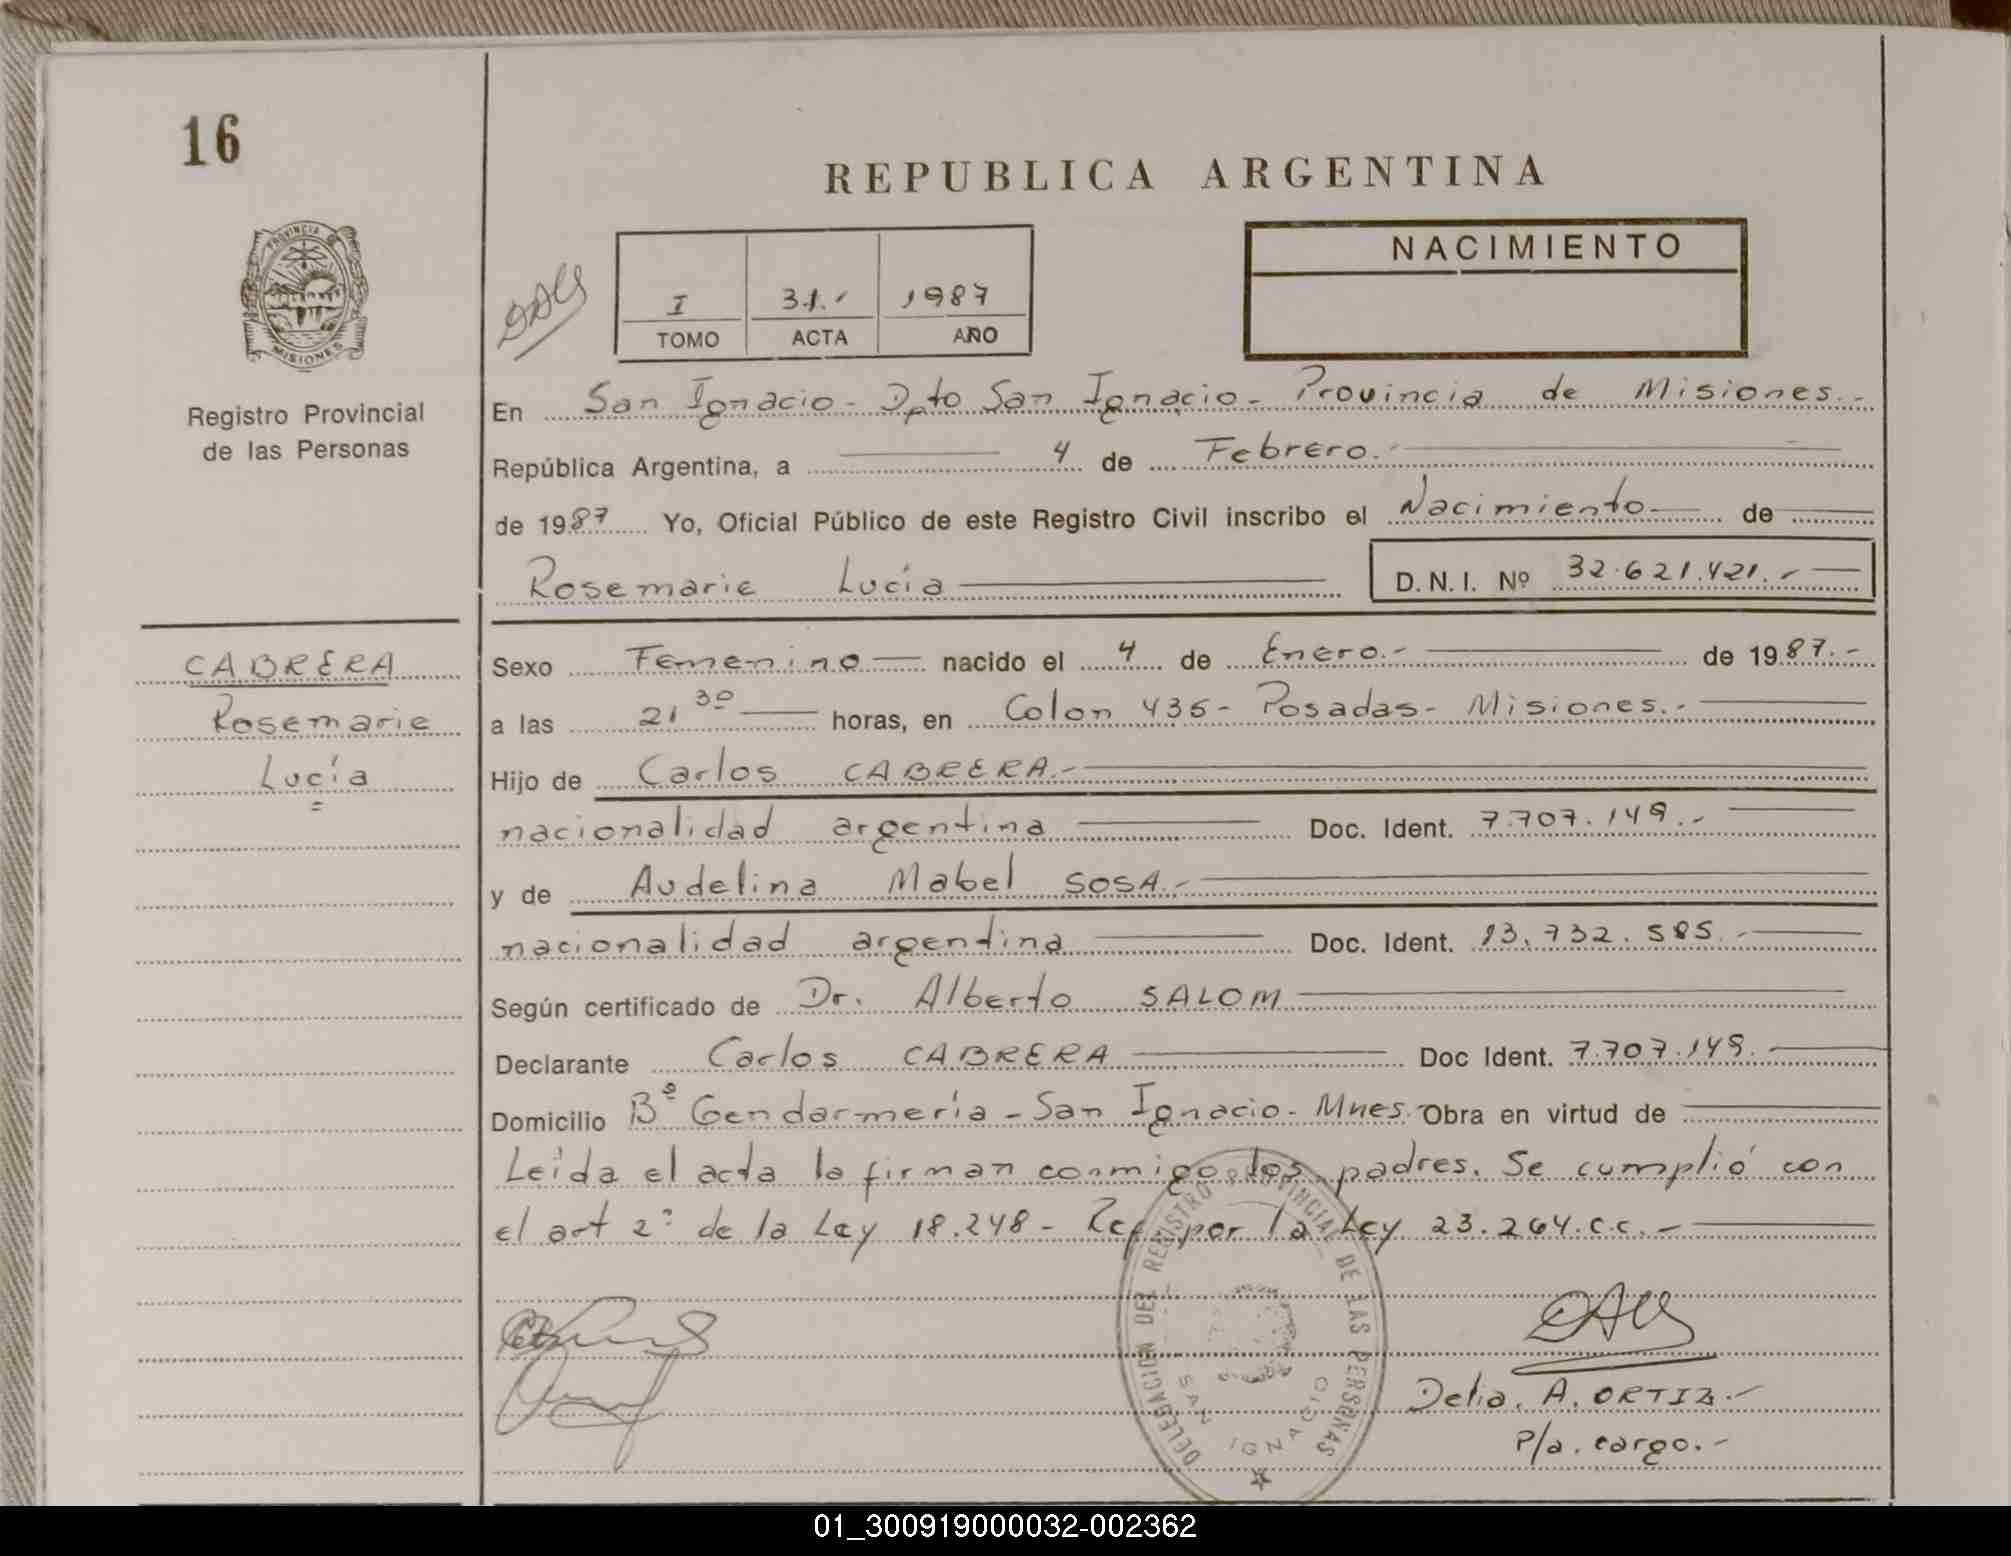 16
REPUBLICA ARGENTINA
PROVINCIA
MISIONES
Registro Provincial
de las Personas
I 31.- 1987
TOMO ACTA AÑO
NACIMIENTO
En San Ignacio - Dpto San Ignacio - Provincia de Misiones.-
República Argentina, a 4 de Febrero.-
de 1987 Yo, Oficial Público de este Registro Civil inscribo el Nacimiento de
Rosemarie Lucía D.N.I. Nº 32.621.421.-
CABRERA
Rosemarie
Lucía
Sexo Femenino nacido el 4 de Enero.- de 1987.-
a las 21 30 horas, en Colon 435 - Posadas - Misiones.-
Hijo de Carlos CABRERA.-
nacionalidad argentina Doc. Ident. 7.707.149.-
y de Audelina Mabel SOSA.-
nacionalidad argentina Doc. Ident. 13.732.585.-
Según certificado de Dr. Alberto SALOM
Declarante Carlos CABRERA Doc Ident. 7.707.149.-
Domicilio Bº Gendarmería - San Ignacio - Mnes. Obra en virtud de
Leída el acta la firman conmigo los padres. Se cumplió con
el art 2º de la Ley 18.248 - Ref por la Ley 23.264.c.c.-
DELEGACION DEL REGISTRO PROVINCIAL DE LAS PERSONAS
SAN IGNACIO
Delia. A. ORTIZ.-
P/a. cargo.-
01_300919000032-002362